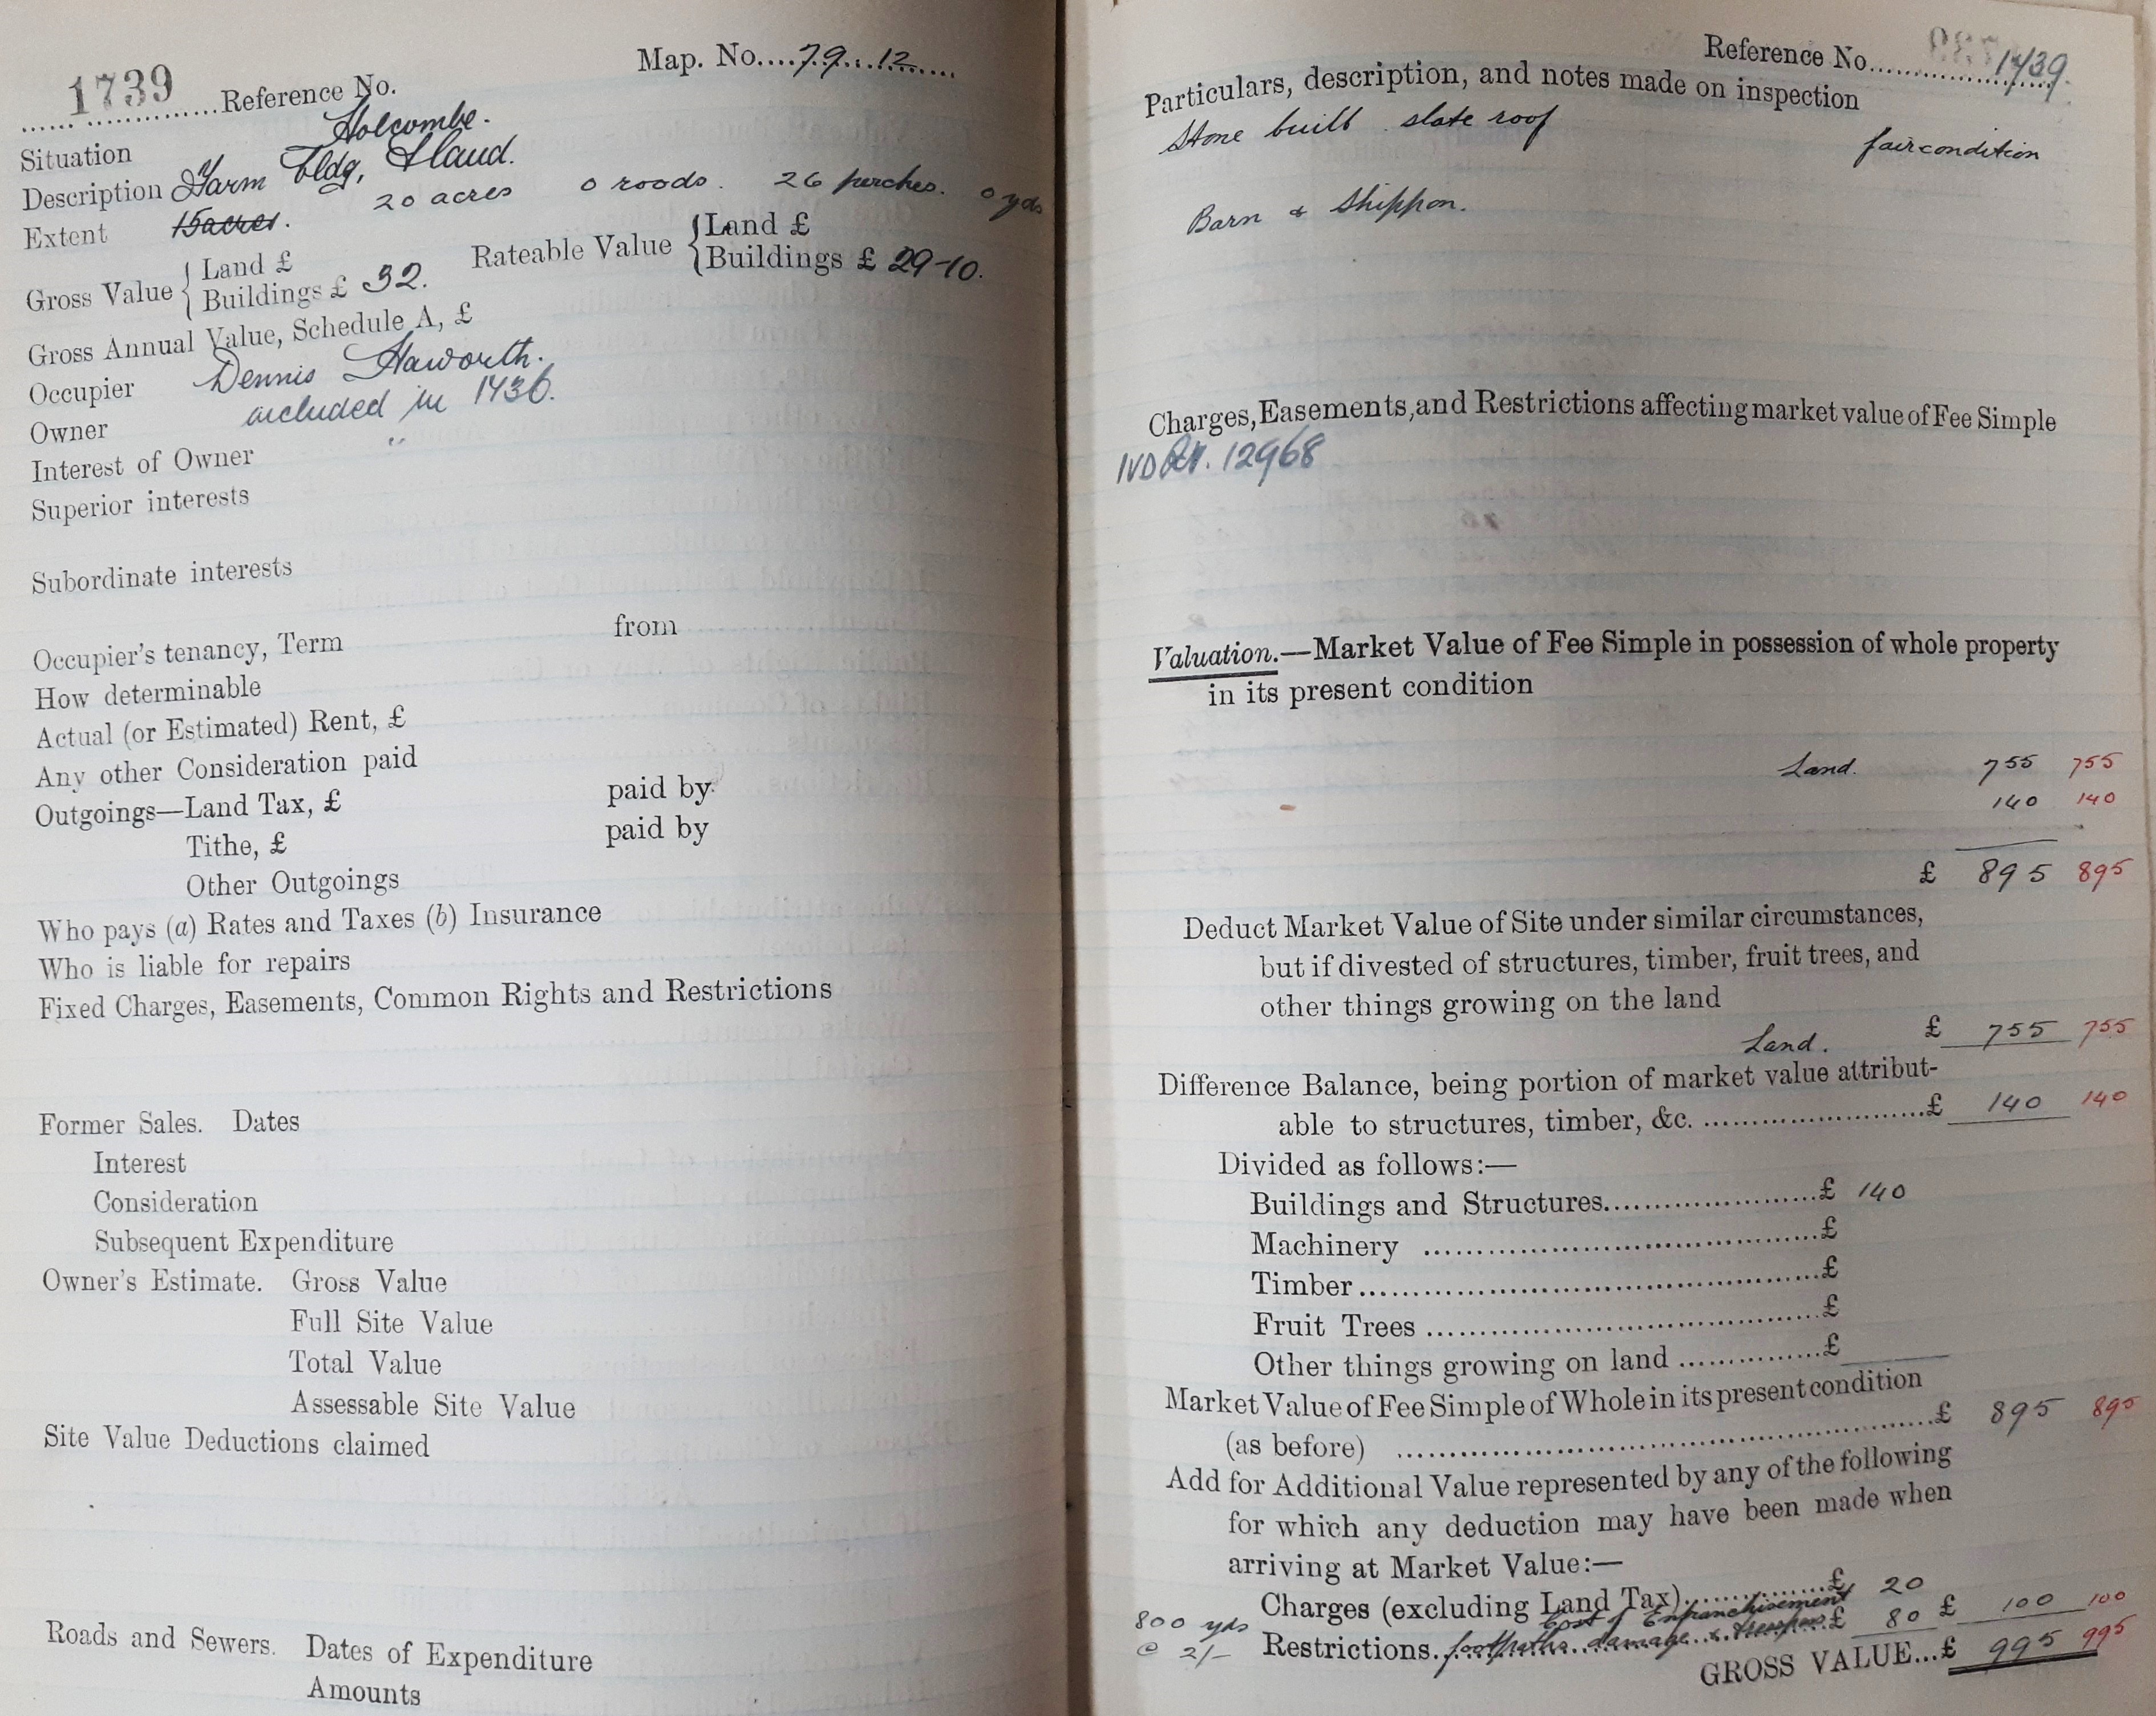 1739 Reference No. Map. No. 79.12
Situation Holcombe.
Description Farm bldg, & land.
Extent 15 acres. 20 acres 0 roods. 26 perches. 0 yds
Gross Value { Land £
Buildings £ 32.
Rateable Value { Land £
Buildings £ 29-10.
Gross Annual Value, Schedule A, £
Occupier Dennis Haworth.
Owner included in 1736.
Interest of Owner "
Superior interests
Subordinate interests
Occupier's tenancy, Term from
How determinable
Actual (or Estimated) Rent, £
Any other Consideration paid
Outgoings—Land Tax, £ paid by
Tithe, £ paid by
Other Outgoings
Who pays (a) Rates and Taxes (b) Insurance
Who is liable for repairs
Fixed Charges, Easements, Common Rights and Restrictions
Former Sales. Dates
Interest
Consideration
Subsequent Expenditure
Owner's Estimate. Gross Value
Full Site Value
Total Value
Assessable Site Value
Site Value Deductions claimed
Roads and Sewers. Dates of Expenditure
Amounts
Reference No. 1739.
Particulars, description, and notes made on inspection
Stone built slate roof fair condition
Barn & Shippon.
Charges, Easements, and Restrictions affecting market value of Fee Simple
IVD 12968
Valuation.—Market Value of Fee Simple in possession of whole property
in its present condition
Land. 755 755
140 140
£ 895 895
Deduct Market Value of Site under similar circumstances,
but if divested of structures, timber, fruit trees, and
other things growing on the land
Land. £ 755 755
Difference Balance, being portion of market value attribut-
able to structures, timber, &c. £ 140 140
Divided as follows:—
Buildings and Structures £ 140
Machinery £
Timber £
Fruit Trees £
Other things growing on land £
Market Value of Fee Simple of Whole in its present condition
(as before) £ 895 895
Add for Additional Value represented by any of the following
for which any deduction may have been made when
arriving at Market Value:—
Charges (excluding Land Tax) £ 20
Cost of Enfranchisement
800 yds @ 2/- Restrictions footpaths damage & trespass £ 80 £ 100 100
GROSS VALUE...£ 995 995